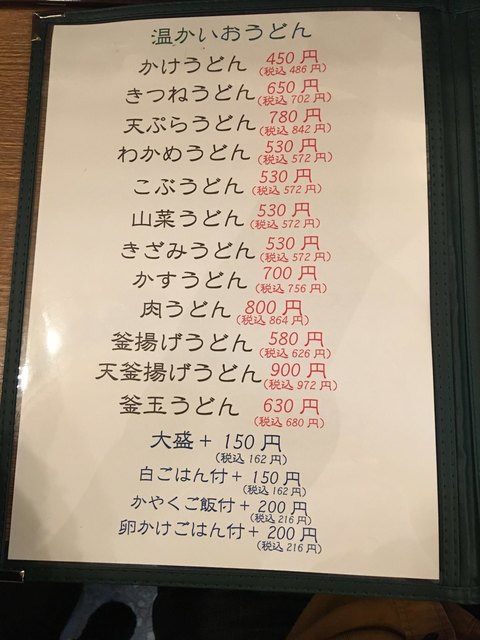 温かいおうどん
かけうどん 450円
(税込 486円)
きつねうどん 650円
(税込 702円)
天ぷらうどん 780円
(税込 842円)
わかめうどん 530円
(税込 572円)
こぶうどん 530円
(税込 572円)
山菜うどん 530円
(税込 572円)
きざみうどん 530円
(税込 572円)
かすうどん 700円
(税込 756円)
肉うどん 800円
(税込 864円)
釜揚げうどん 580円
(税込 626円)
天釜揚げうどん 900円
(税込 972円)
釜玉うどん 630円
(税込 680円)
大盛 + 150円
(税込 162円)
白ごはん付 + 150円
(税込 162円)
かやくご飯付 + 200円
(税込 216円)
卵かけごはん付 + 200円
(税込 216円)